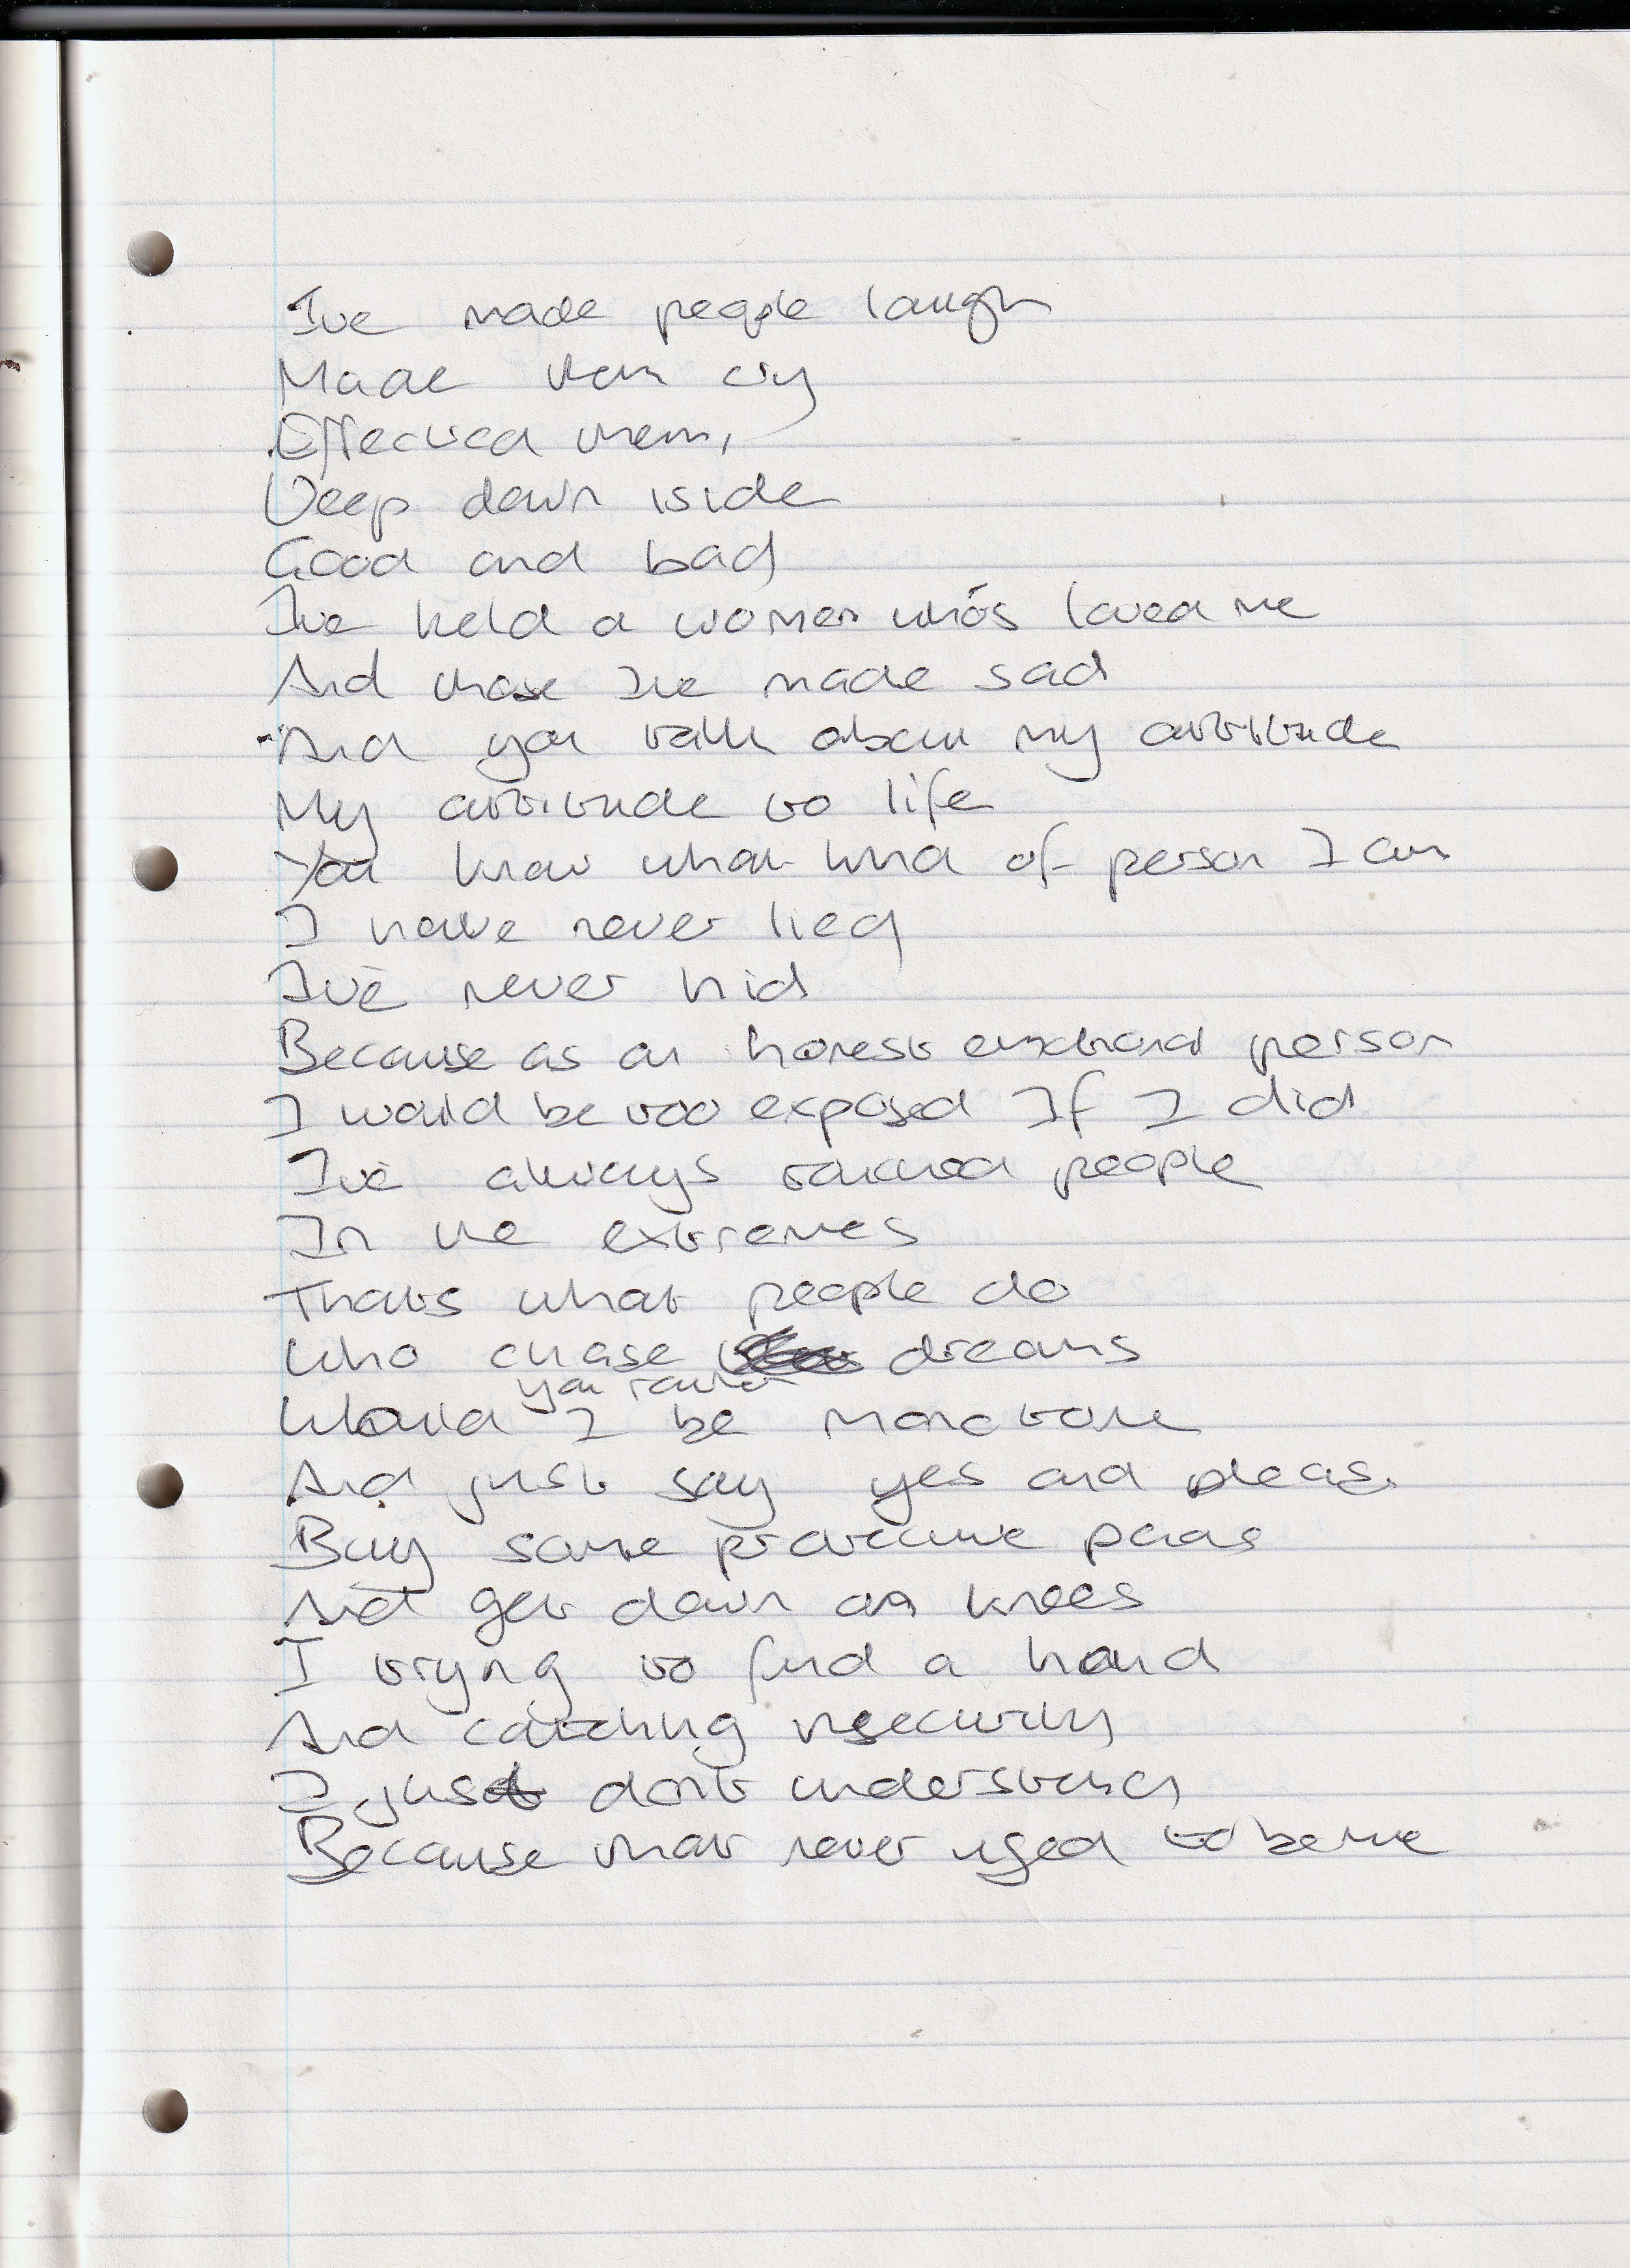 I've made people laugh
Made them cry
Effected them,
Deep down iside
Good and bad
I've held a women who's loved me
And those I've made sad
And you talk about my attitude
My attitude to life
You know what kind of person I am
I have never lied
I've never hid
Because as an honest emotional person
I would be too exposed If I did
I've always touched people
In the extremes
Thats what people do
Who chase dreams
you rather
Would I be monotone
And just say yes and pleas
Buy some protective pads
And get down on knees
I tryng to find a hand
And catching insecurity
I just dont understand
Because that never used to be me